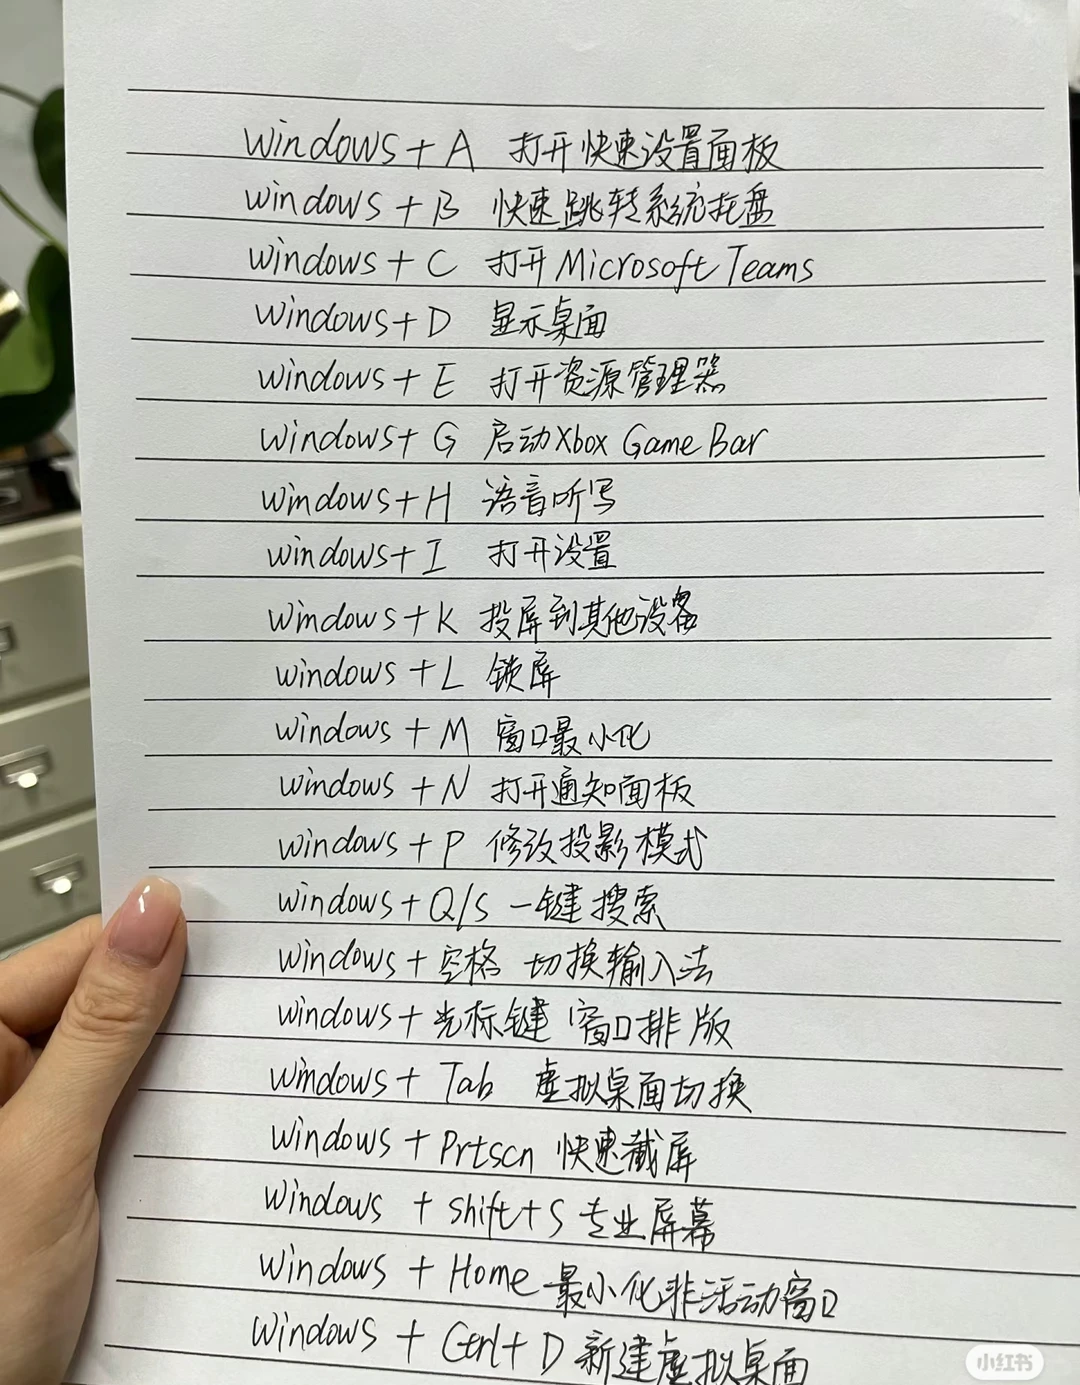 Windows + A 打开快速设置面板
windows + B 快速跳转系统托盘
windows + C 打开Microsoft Teams
windows + D 显示桌面
windows + E 打开资源管理器
windows + G 启动Xbox Game Bar
windows + H 语音听写
windows + I 打开设置
windows + K 投屏到其他设备
windows + L 锁屏
windows + M 窗口最小化
windows + N 打开通知面板
windows + P 修改投影模式
windows + Q/S 一键搜索
windows + 空格 切换输入法
windows + 光标键 窗口排版
windows + Tab 虚拟桌面切换
windows + Prtscn 快速截屏
windows + shift + S 专业屏幕
windows + Home 最小化非活动窗口
windows + Ctrl + D 新建虚拟桌面
小红书